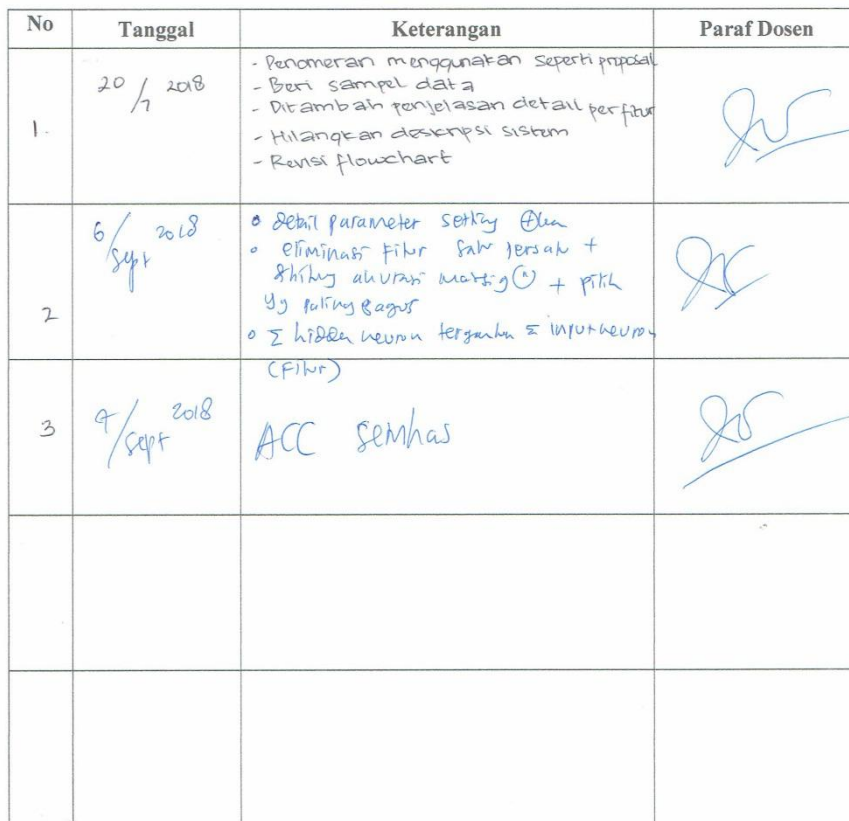 No Tanggal Keterangan Paraf Dosen
1. 20/7 2018
- Penomeran menggunakan seperti proposal
- Beri sampel data
- Ditambah penjelasan detail per fitur
- Hilangkan deskripsi sistem
- Revisi flowchart
2 6/Sept 2018
• detail parameter setting
• eliminasi fitur satu persatu +
akurasi masing + pilih
yg paling bagus
• Σ hidden neuron Σ input neuron
(Fitur)
3 /Sept 2018
ACC Semhas